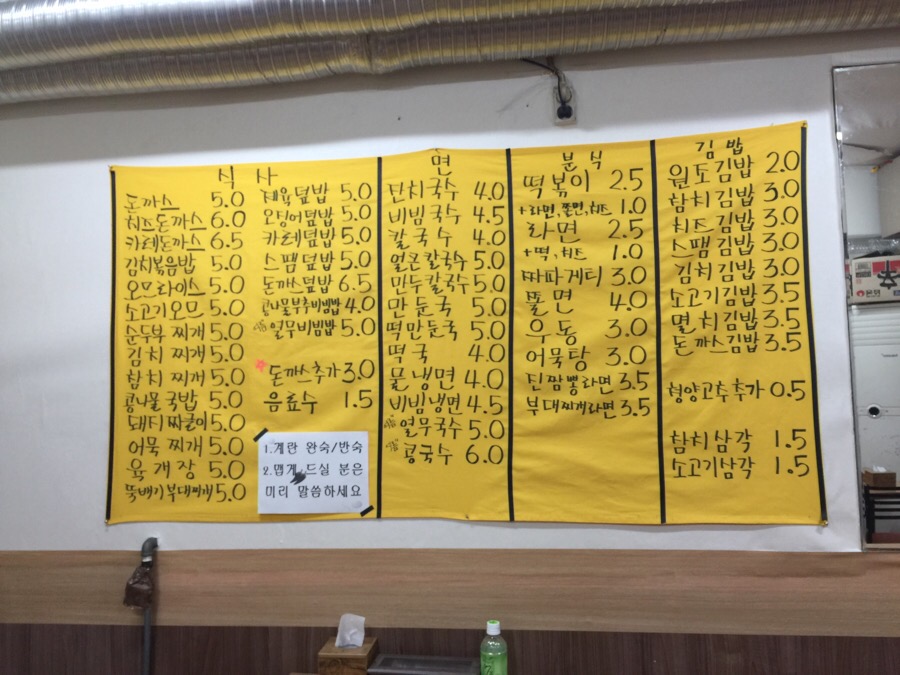 식 사
돈까스 5.0
치즈돈까스 6.0
카레돈까스 6.5
김치볶음밥 5.0
오므라이스 5.0
소고기오므 5.0
순두부 찌개 5.0
김치 찌개 5.0
참치 찌개 5.0
콩나물 국밥 5.0
돼지짜글이 5.0
어묵 찌개 5.0
육개장 5.0
뚝배기부대찌개 5.0
제육덮밥 5.0
오징어덮밥 5.0
카레덮밥 5.0
스팸덮밥 5.0
돈까스덮밥 6.5
콩나물부추비빔밥 4.0
열무비빔밥 5.0
돈까스추가 3.0
음료수 1.5
1.계란 완숙/반숙
2.맵게 드실 분은
미리 말씀하세요
면
잔치국수 4.0
비빔국수 4.5
칼국수 4.0
얼큰칼국수 5.0
만두칼국수 5.0
만둣국 5.0
떡만둣국 5.0
떡국 4.0
물냉면 4.0
비빔냉면 4.5
열무국수 5.0
콩국수 6.0
분식
떡볶이 2.5
+라면, 쫄면, 치즈 1.0
라면 2.5
+떡, 치즈 1.0
짜파게티 3.0
쫄면 4.0
우동 3.0
어묵탕 3.0
진짬뽕라면 3.5
부대찌개라면 3.5
김밥
원조김밥 2.0
참치김밥 3.0
치즈김밥 3.0
스팸김밥 3.0
김치김밥 3.0
소고기김밥 3.5
멸치김밥 3.5
돈까스김밥 3.5
청양고추추가 0.5
참치삼각 1.5
소고기삼각 1.5